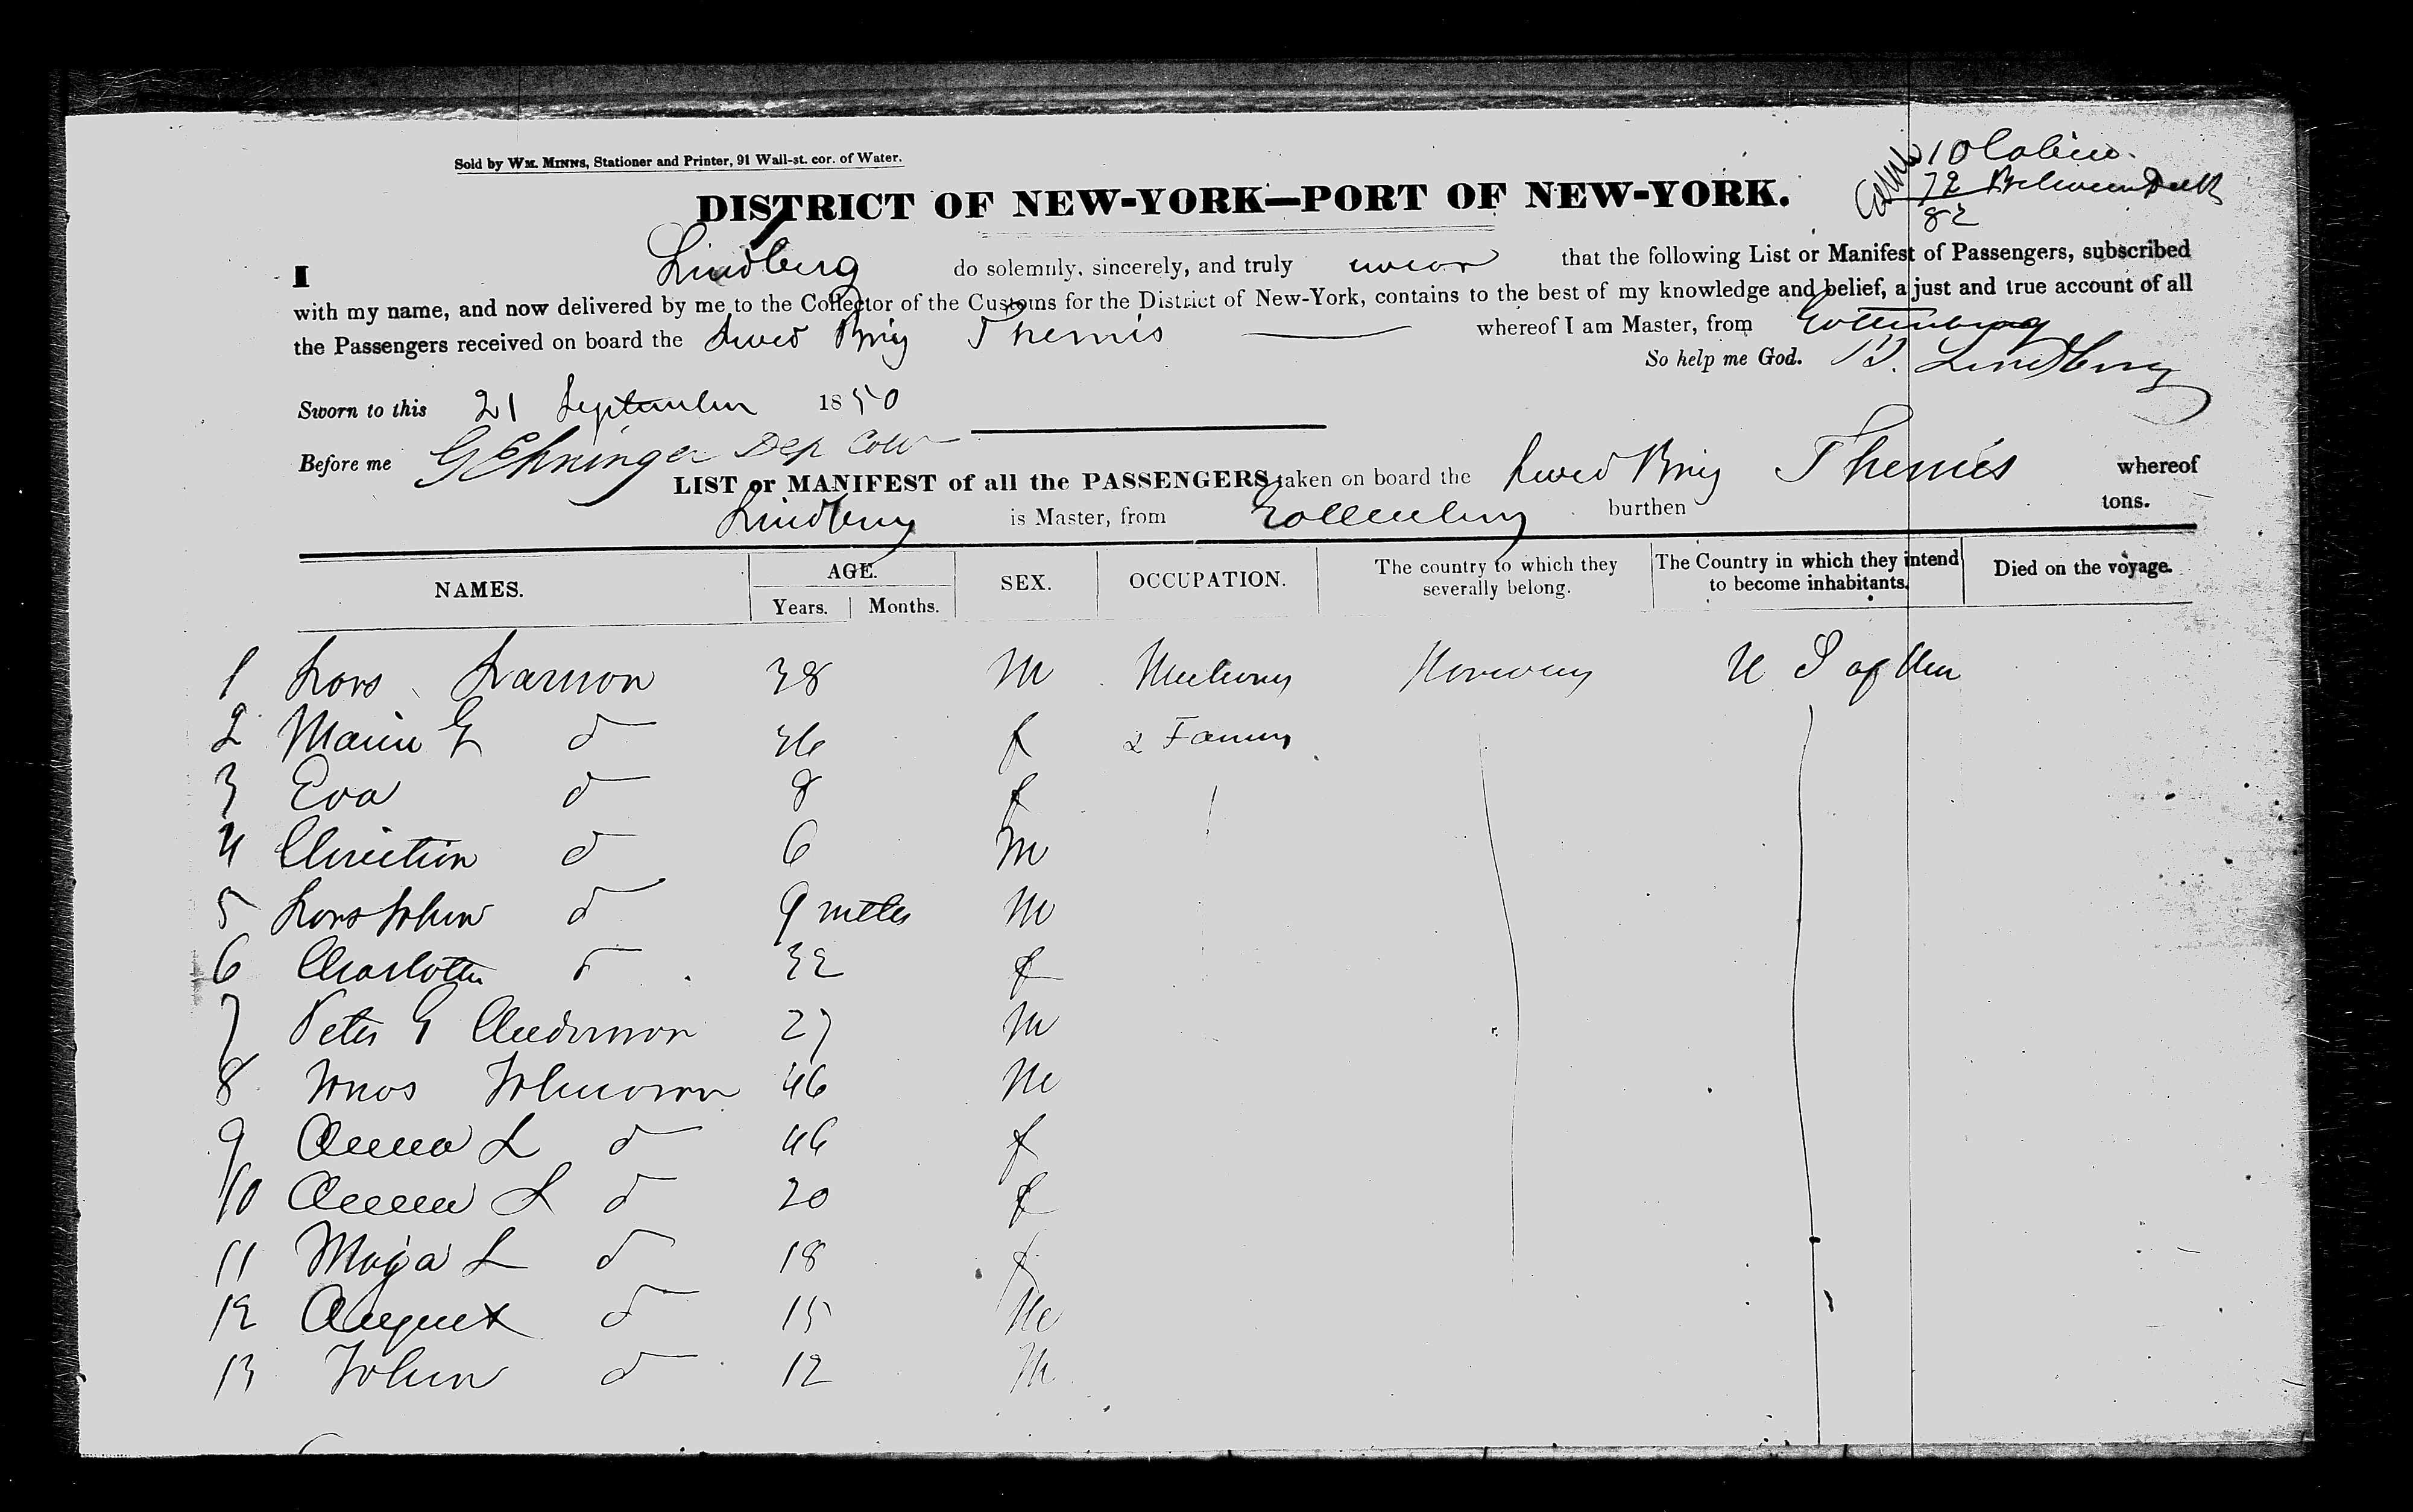 Sold by Wm. Minns, Stationer and Printer, 91 Wall-st. cor. of Water.
10 Cabin
72 Between Deck
82
DISTRICT OF NEW-YORK—PORT OF NEW-YORK.
I Lindberg do solemnly, sincerely, and truly swear that the following List or Manifest of Passengers, subscribed
with my name, and now delivered by me to the Collector of the Customs for the District of New-York, contains to the best of my knowledge and belief, a just and true account of all
the Passengers received on board the Swed Brig Themis whereof I am Master, from Gottenburg
So help me God. Lindberg
Sworn to this 21 September 1850
Before me G Ehninger Dep Coll
LIST or MANIFEST of all the PASSENGERS taken on board the Swed Brig Themis whereof
Lindberg is Master, from Gottenburg burthen tons.
NAMES. AGE. Years. Months. SEX. OCCUPATION. The country to which they severally belong. The Country in which they intend to become inhabitants. Died on the voyage.
1 Lars Larsson 38 M Norway U S of Am
2 d 36 f & Family
3 Eva d 8 f
4 Christian d 6 M
5 Lars John d 9 mths M
6 Charlotta d 32 f
7 Peter G Anderson 27 M
8 Jonas Johnson 46 M
9 Anna L d 46 f
10 Anna L d 20 f
11 Maja L d 18 f
12 August d 15 M
13 John d 12 M